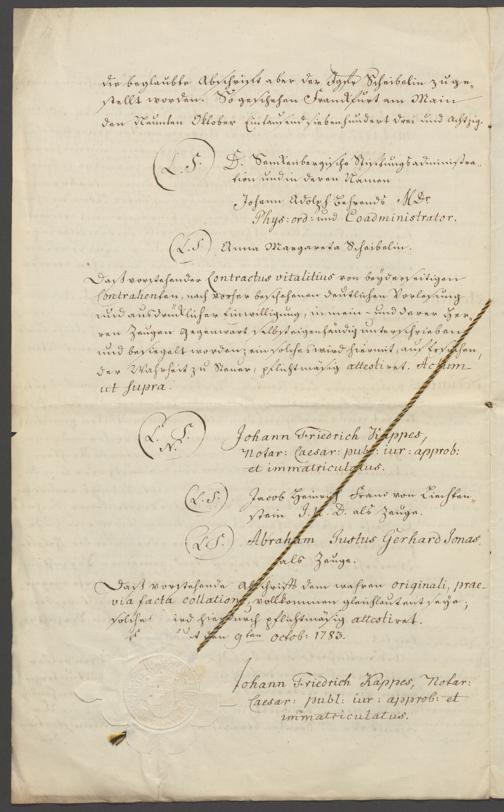 die beglaubte Abschrifft aber der Jgfr Scheibelin zuge-
stellt worden. So geschehen Franckfurt am Main
den Neunten Oktober Eintausend siebenhundert drei und achtzig.
L. S. D. Senkenbergische Stiftungsadministra-
tion und in deren Namen
Johann Adolph Behrends M. Dr
Phys: ord: und Coadministrator.
L. S. Anna Margareta Scheibelin.
Daß vorstehender Contractus vitalitius von beyderseitigen
Contrahenten, nach vorher beschehenen deutlichen Vorlesung
und ausdrücklicher Einwilligung, in mein- und derer Her-
ren Zeugen Gegenwart selbsteigenhändig unterschrieben
und besiegelt worden, ein solches wird hiermit, auf Ersuchen,
der Wahrheit zu Steuer, pflichtmäsig attestiret. Actum
ut supra.
L. S. N. Johann Friedrich Kappes,
Notar: Caesar: publ: iur: approb:
et immatriculatus.
L. S. Jacob Heinrich Franc von Liechten-
stein J. U. D. als Zeuge.
L. S. Abraham Justus Gerhard Jonas
als Zeuge.
Daß vorstehende Abschrifft dem wahren originali, prae-
via facta collatione, vollkommen gleichlautent seye,
solches wird hierdurch pflichtmäsig attestiret.
den 9ten Octob: 1783.
Johann Friedrich Kappes, Notar:
Caesar: publ: iur: approb: et
immatriculatus.